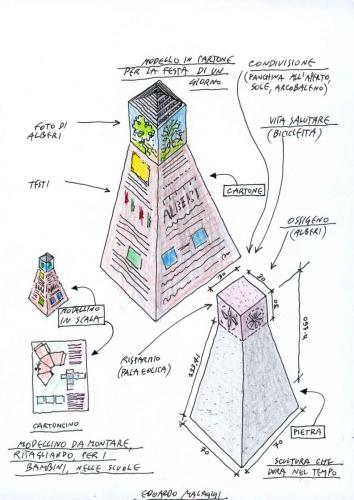 MODELLO IN CARTONE
PER LA FESTA DI UN
GIORNO
CONDIVISIONE
(PANCHINA ALL'APERTO,
SOLE, ARCOBALENO)
FOTO DI
ALBERI
VITA SALUTARE
(BICICLETTA)
TESTI
CARTONE
ALBERI
OSSIGENO
(ALBERI)
MODELLINO
IN SCALA
RISPARMIO
(PALA EOLICA)
20
20
30
70
70
CARTONCINO
MODELLINO DA MONTARE,
RITAGLIANDO, PER I
BAMBINI, NELLE SCUOLE
PIETRA
SCULTURA CHE
DURA NEL TEMPO
EDOARDO MALAGIGI